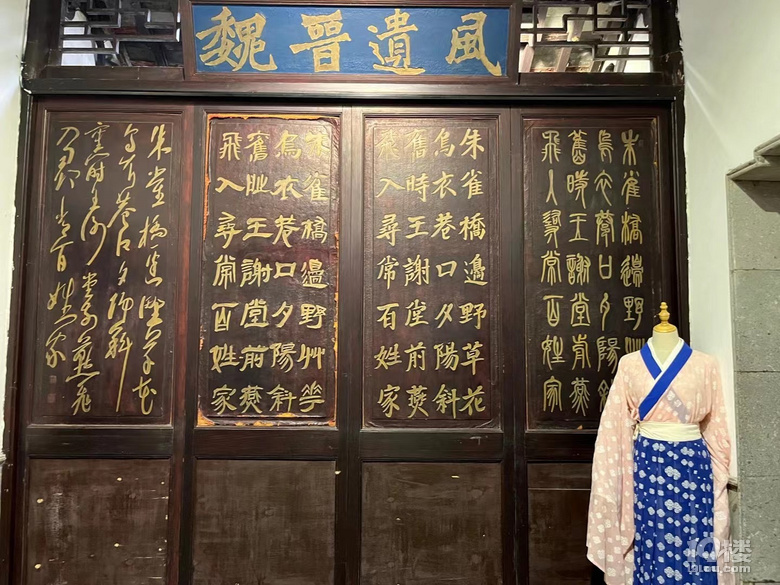 魏晉遺風
朱雀橋邊野
烏衣巷口夕陽
舊時王謝堂前燕
飛入尋常百姓家
朱雀橋邊野草花
烏衣巷口夕陽斜
舊時王謝堂前燕
飛入尋常百姓家
朱雀橋邊野艸華
烏衣巷口夕陽斜
舊時王謝堂前燕
飛入尋常百姓家
朱雀橋邊野草花
烏衣巷口夕陽斜
舊時王謝堂前燕飛
入尋常百姓家
19楼
19lou.com